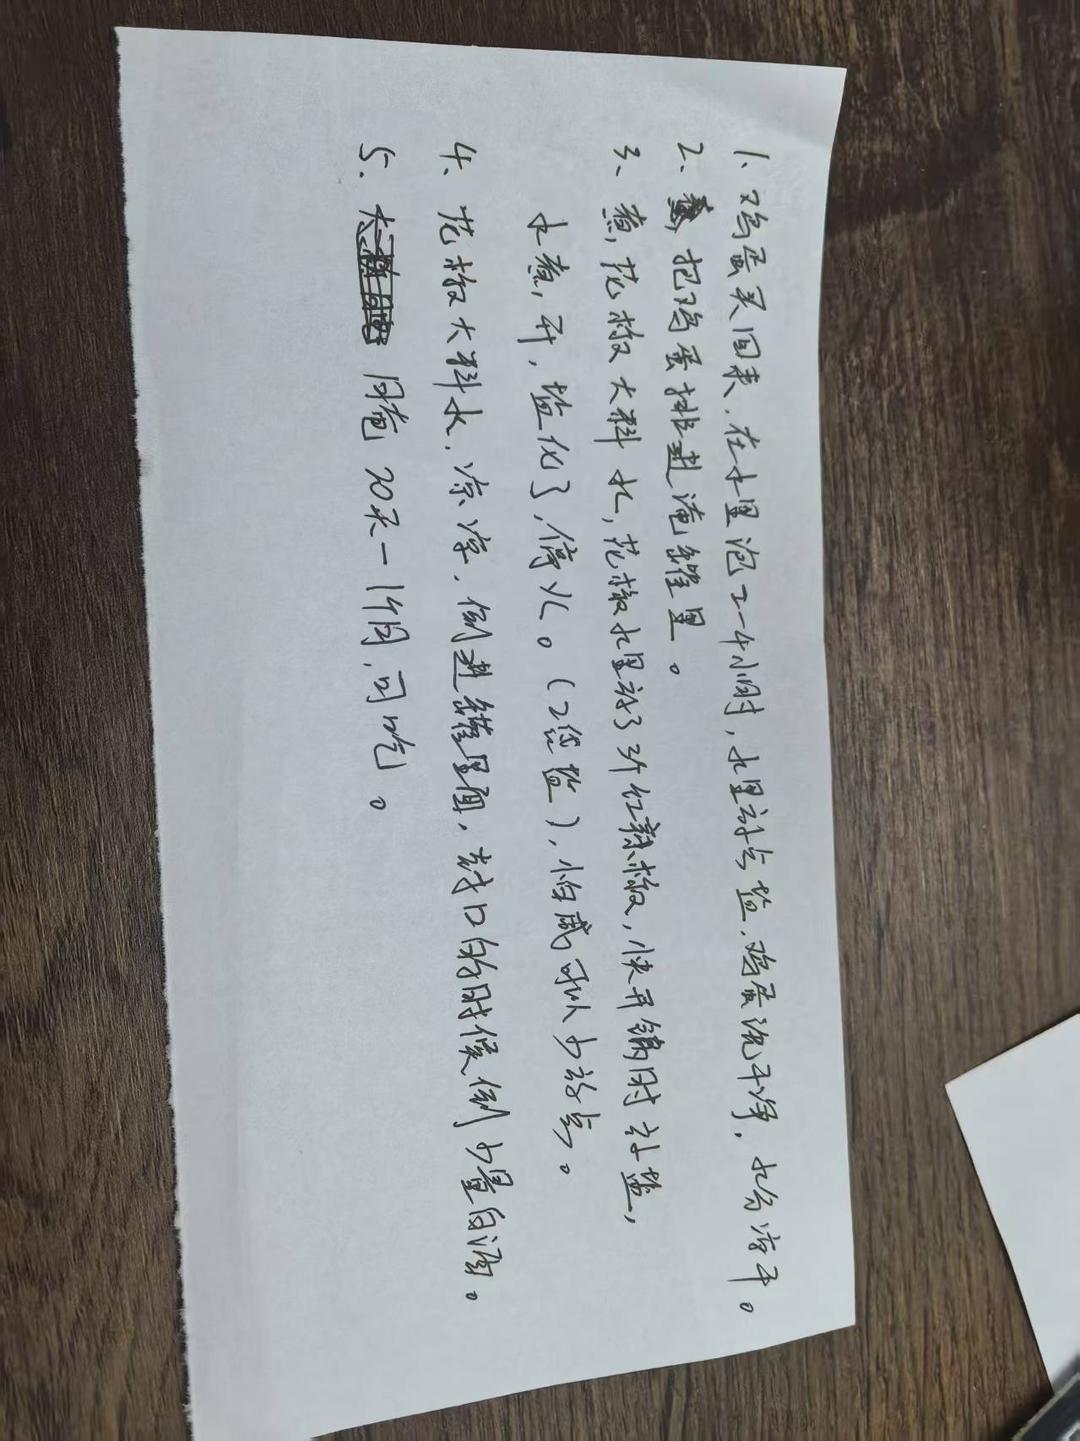 1、鸡蛋买回来，在水里泡2-4小时，水里放点盐，鸡蛋洗干净，水分凉干。
2、把鸡蛋排进淹罐里。
3、煮，花椒大料水，花椒水里放了3个红辣椒，快开锅时放盐，
水煮，开，盐化了，停火。（2袋盐），怕咸可以少放点。
4、花椒大料水，凉凉，倒进罐里面，封口的时候倒少量白酒。
5、 20天-1个月，可吃。